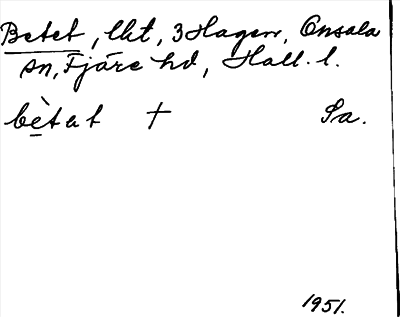 Betet, lht, 3 Hagen, Onsala
sn, Fjäre hd, Hall. l.
bètat † Sa.
1951.